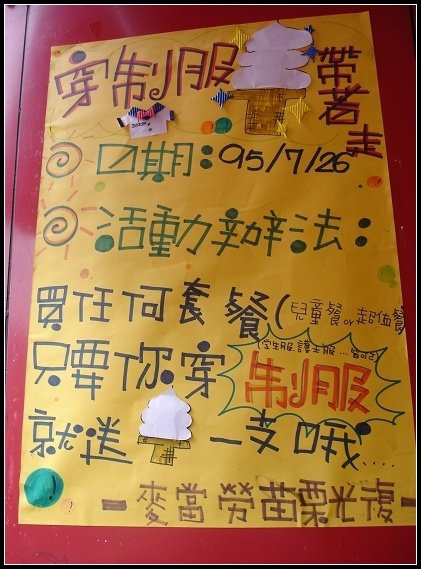 穿制服
帶著走
日期：95/7/26
活動辦法：
買任何套餐(兒童餐or超值餐
只要你穿制服
(學生服.護士服...皆可)
就送 一支哦....
－麥當勞苗栗光復－